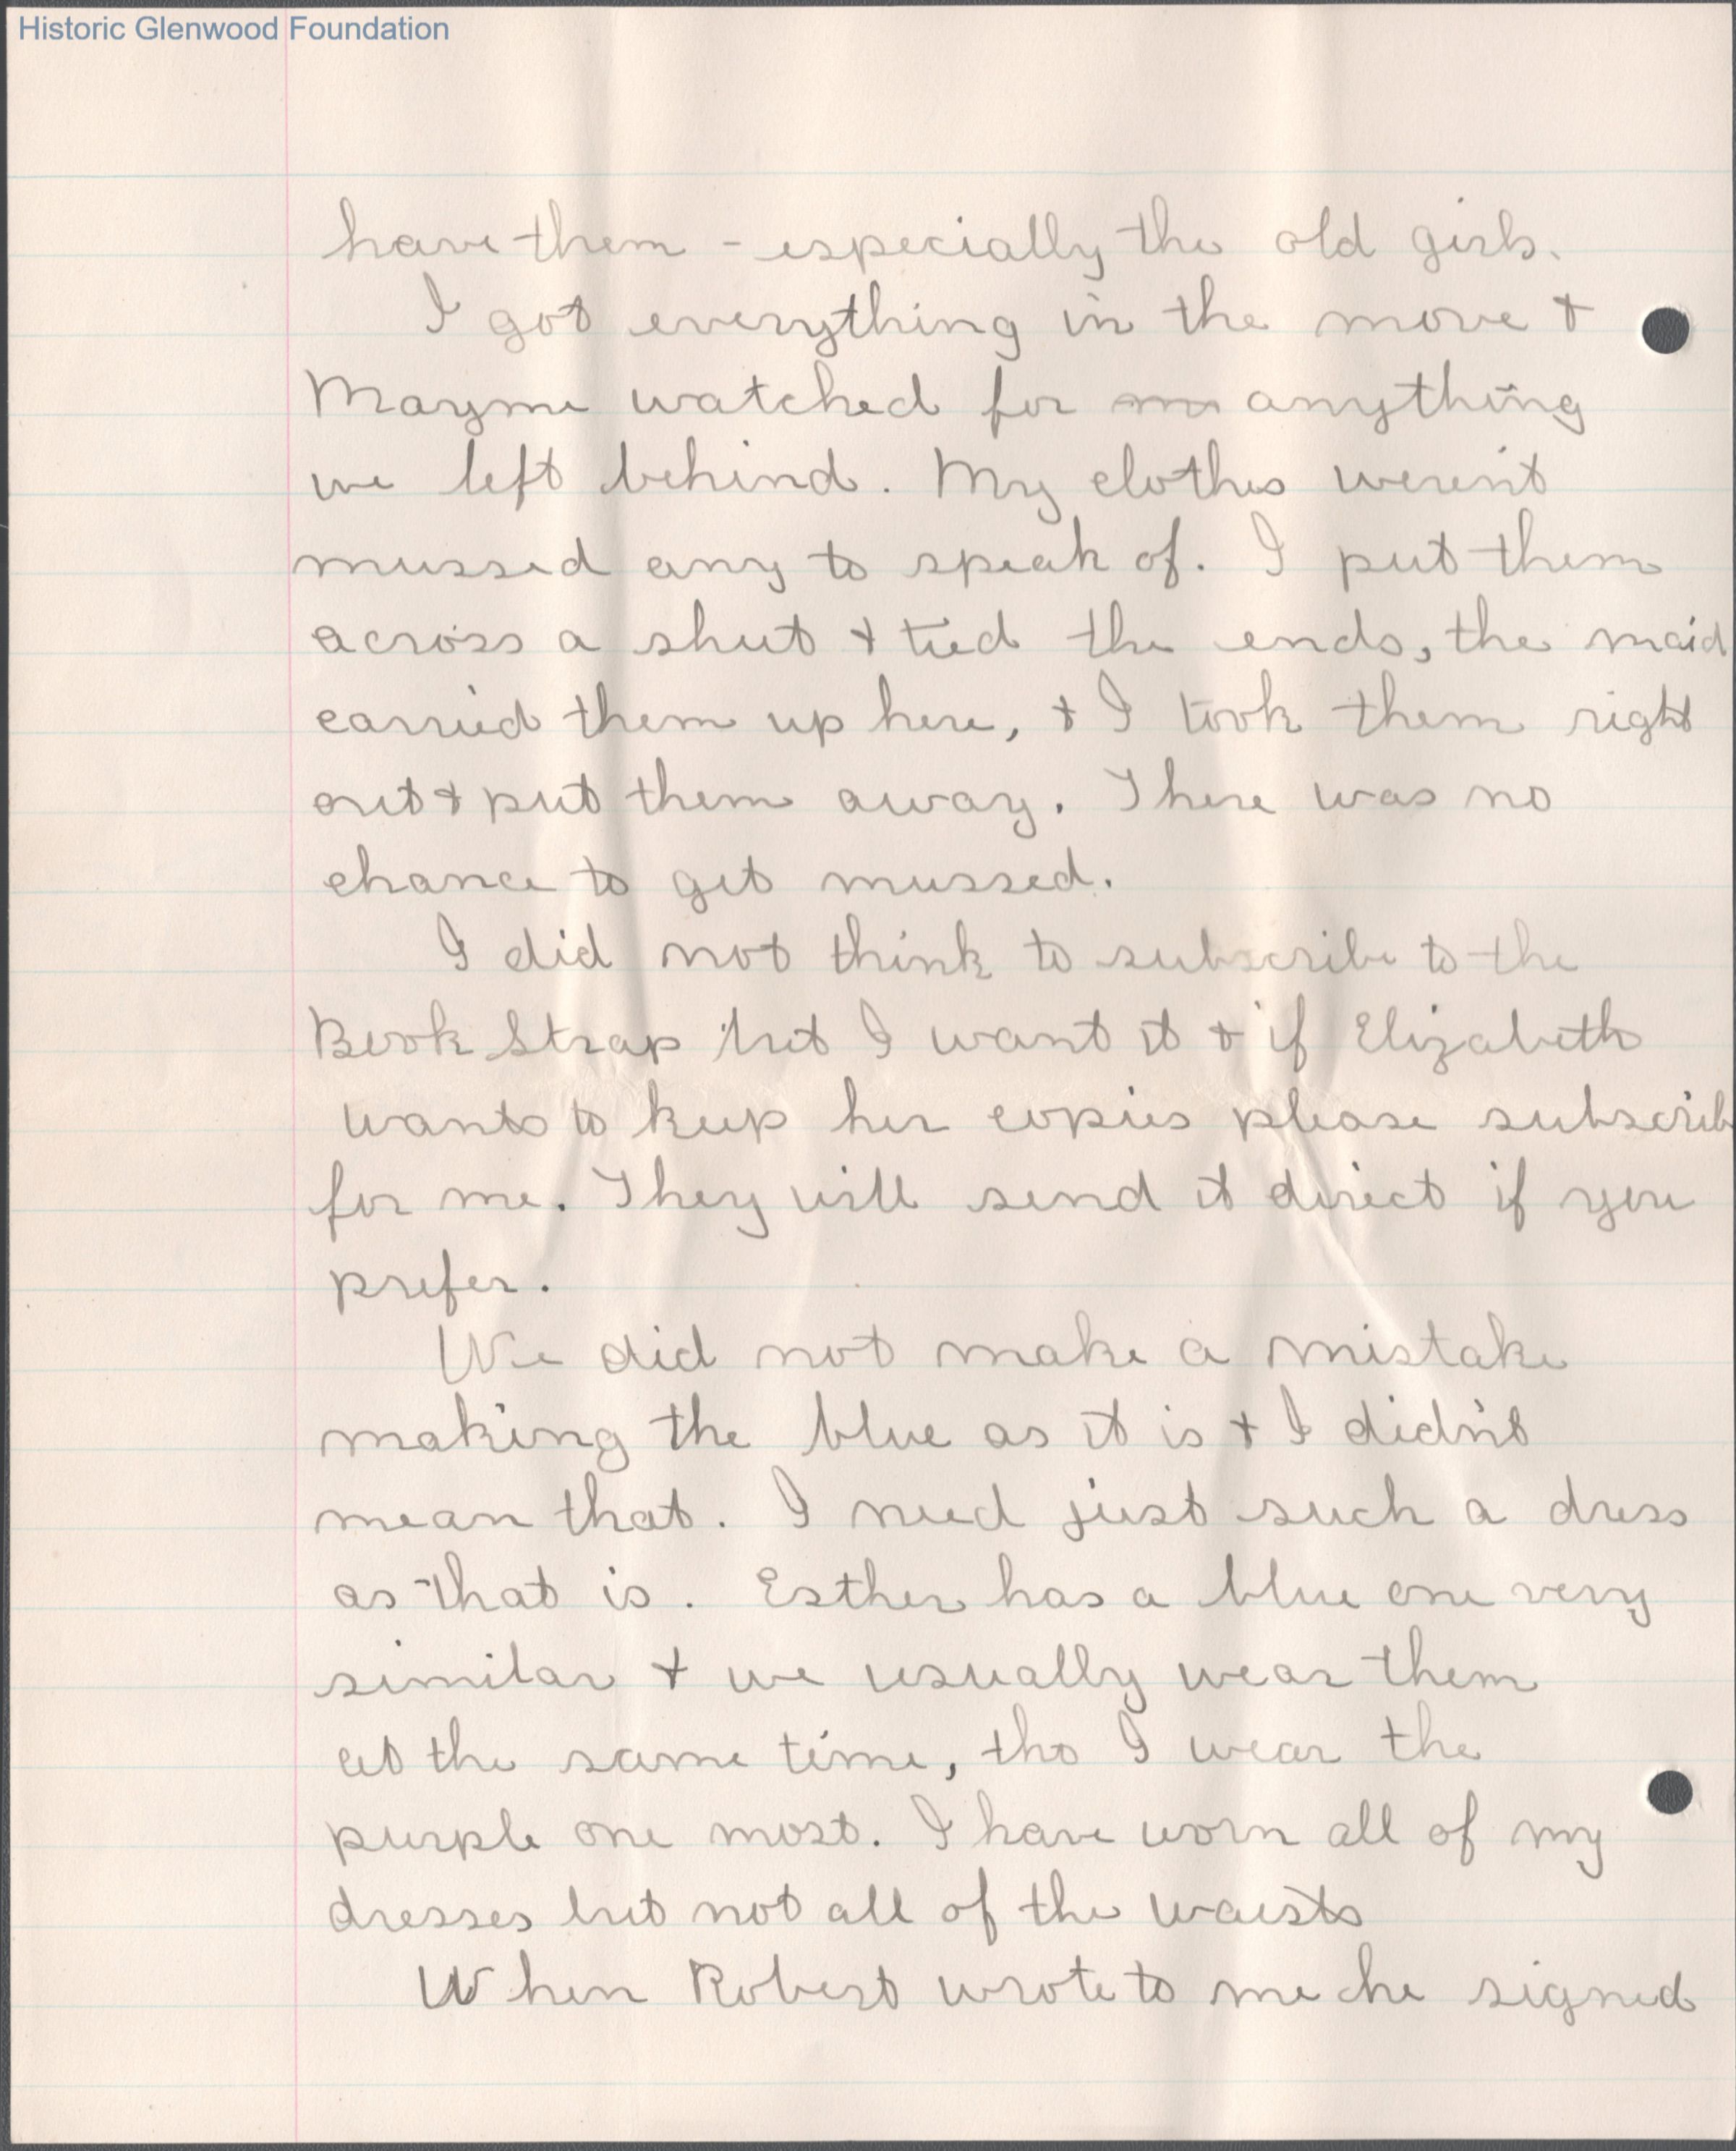 Historic Glenwood Foundation
have them - especially the old girls.
I got everything in the move &
Mayme watched for m anything
we left behind. My clothes weren't
mussed any to speak of. I put them
across a sheet & tied the ends, the maid
carried them up here, & I took them right
out & put them away. There was no
chance to get mussed.
I did not think to subscribe to the
Book Strap but I want it & if Elizabeth
wants to keep her copies please subscrib
for me. They will send it direct if you
prefer.
We did not make a mistake
making the blue as it is & I didn't
mean that. I need just such a dress
as that is. Esther has a blue one very
similar & we usually wear them
at the same time, tho I wear the
purple one most. I have worn all of my
dresses but not all of the waists
When Robert wrote to me he signed